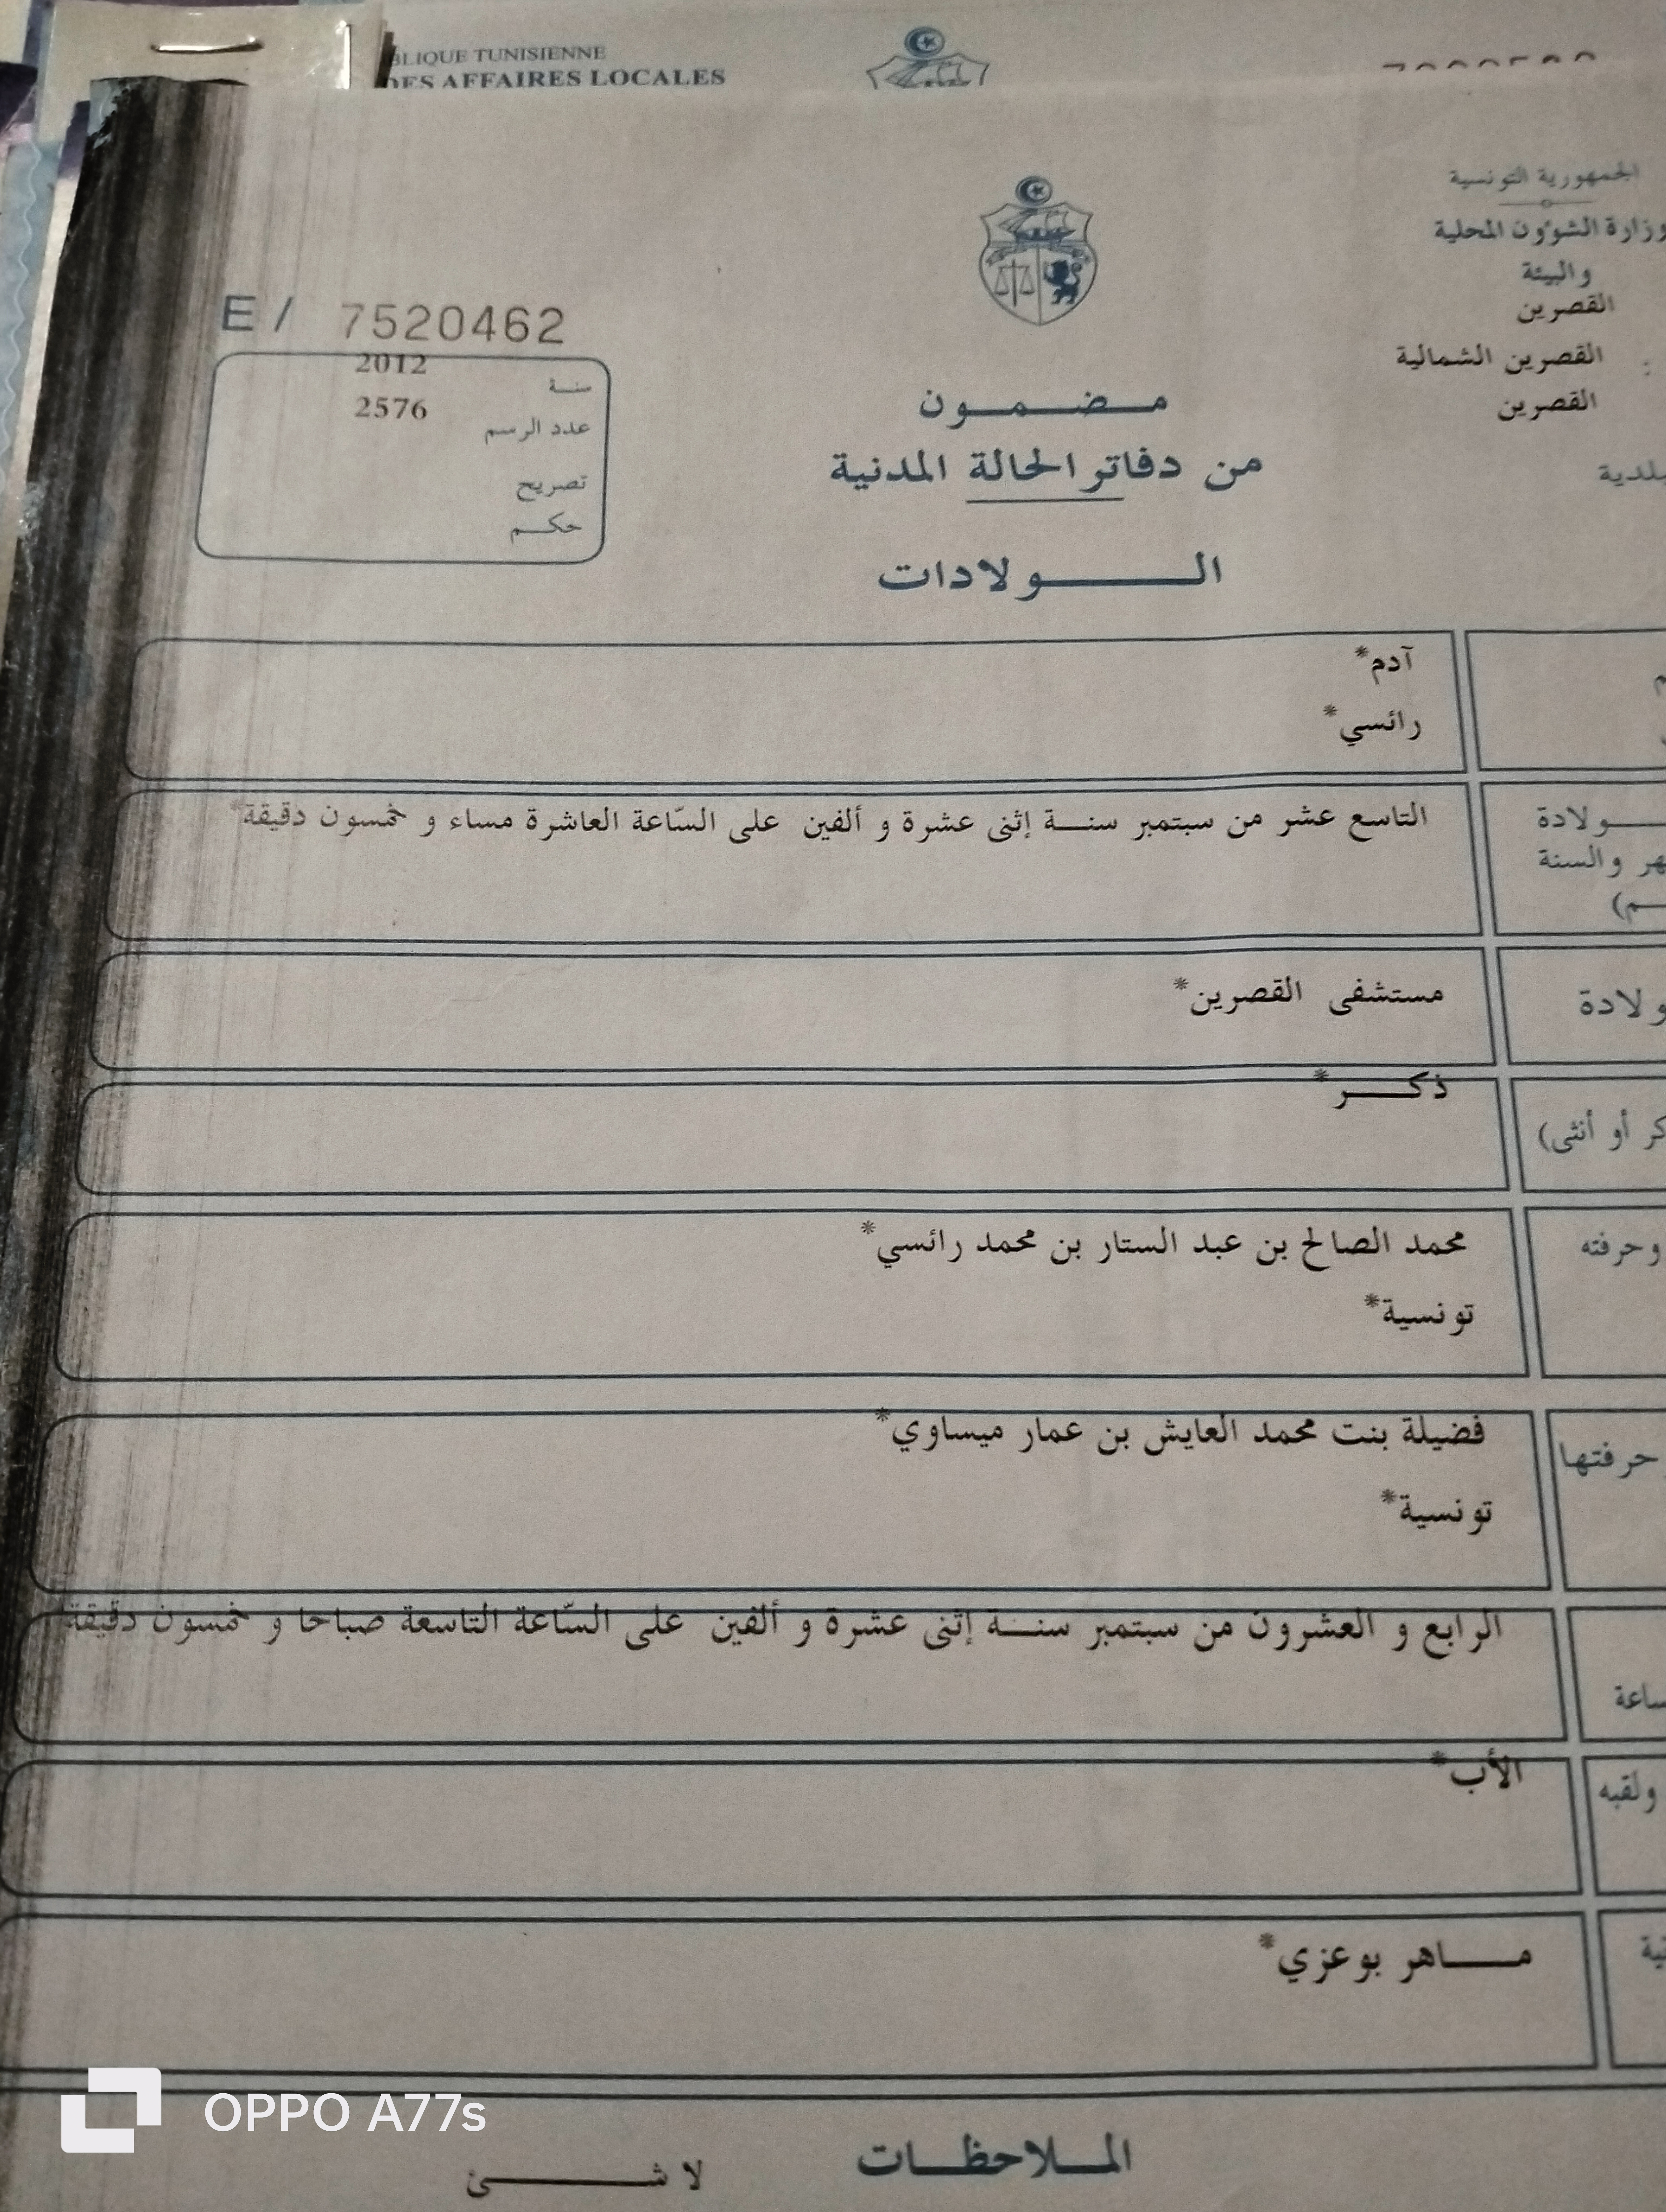 BLIQUE TUNISIENNE
DES AFFAIRES LOCALES
الجمهورية التونسية
وزارة الشؤون المحلية
والبيئة
القصرين
القصرين الشمالية :
القصرين
بلدية
E / 7520462
2012 سنة
2576 عدد الرسم
تصريح
حكم
مضمون
من دفاتر الحالة المدنية
الولادات
آدم*
رائسي*
ولادة
هر والسنة
م)
التاسع عشر من سبتمبر سنة إثنى عشرة و ألفين على السّاعة العاشرة مساء و خمسون دقيقة*
ولادة
مستشفى القصرين*
ذكر*
كر أو أنثى)
وحرفته
محمد الصالح بن عبد الستار بن محمد رائسي*
تونسية*
حرفتها
فضيلة بنت محمد العايش بن عمار ميساوي*
تونسية*
الرابع و العشرون من سبتمبر سنة إثنى عشرة و ألفين على السّاعة التاسعة صباحا و خمسون دقيقة
ساعة
الأب*
ولقبه
ماهر بوعزي*
الملاحظات
لا شئ
OPPO A77s